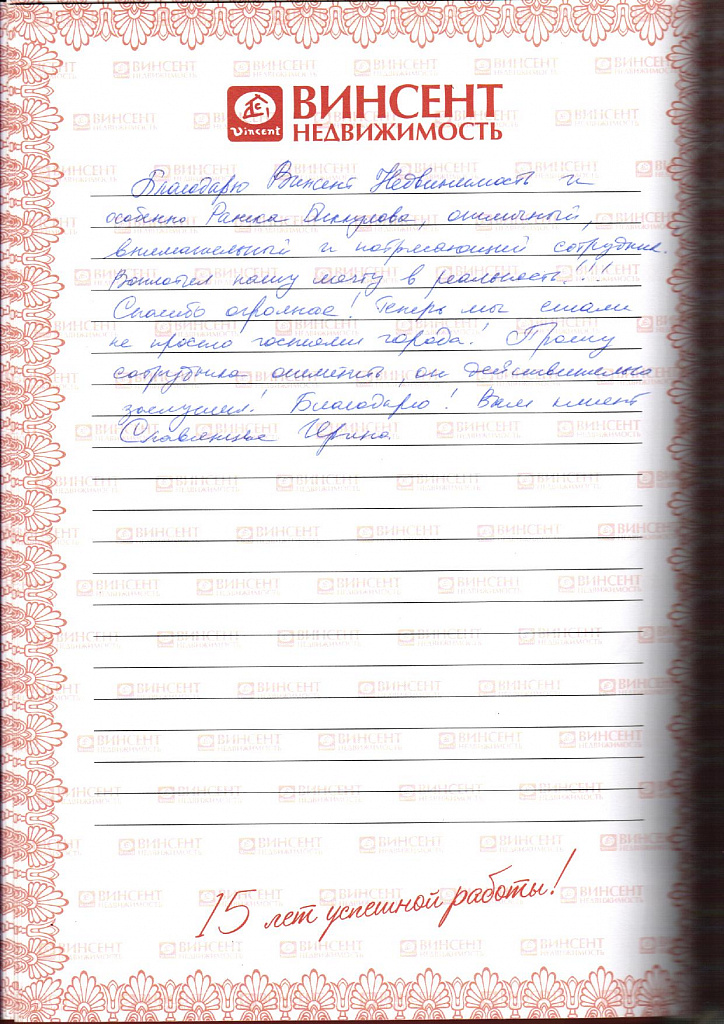 ВИНСЕНТ
НЕДВИЖИМОСТЬ
Vincent
Благодарю Винсент Недвижимость и
особенно отличный,
внимательный и потрясающий сотрудник.
Воплотил нашу мечту в реальность!!!
Спасибо огромное! Теперь мы стали
не просто гостями города! Прошу
сотрудника отметить, он действительно
заслужил! Благодарю! Ваш клиент
Ирина
15 лет успешной работы!